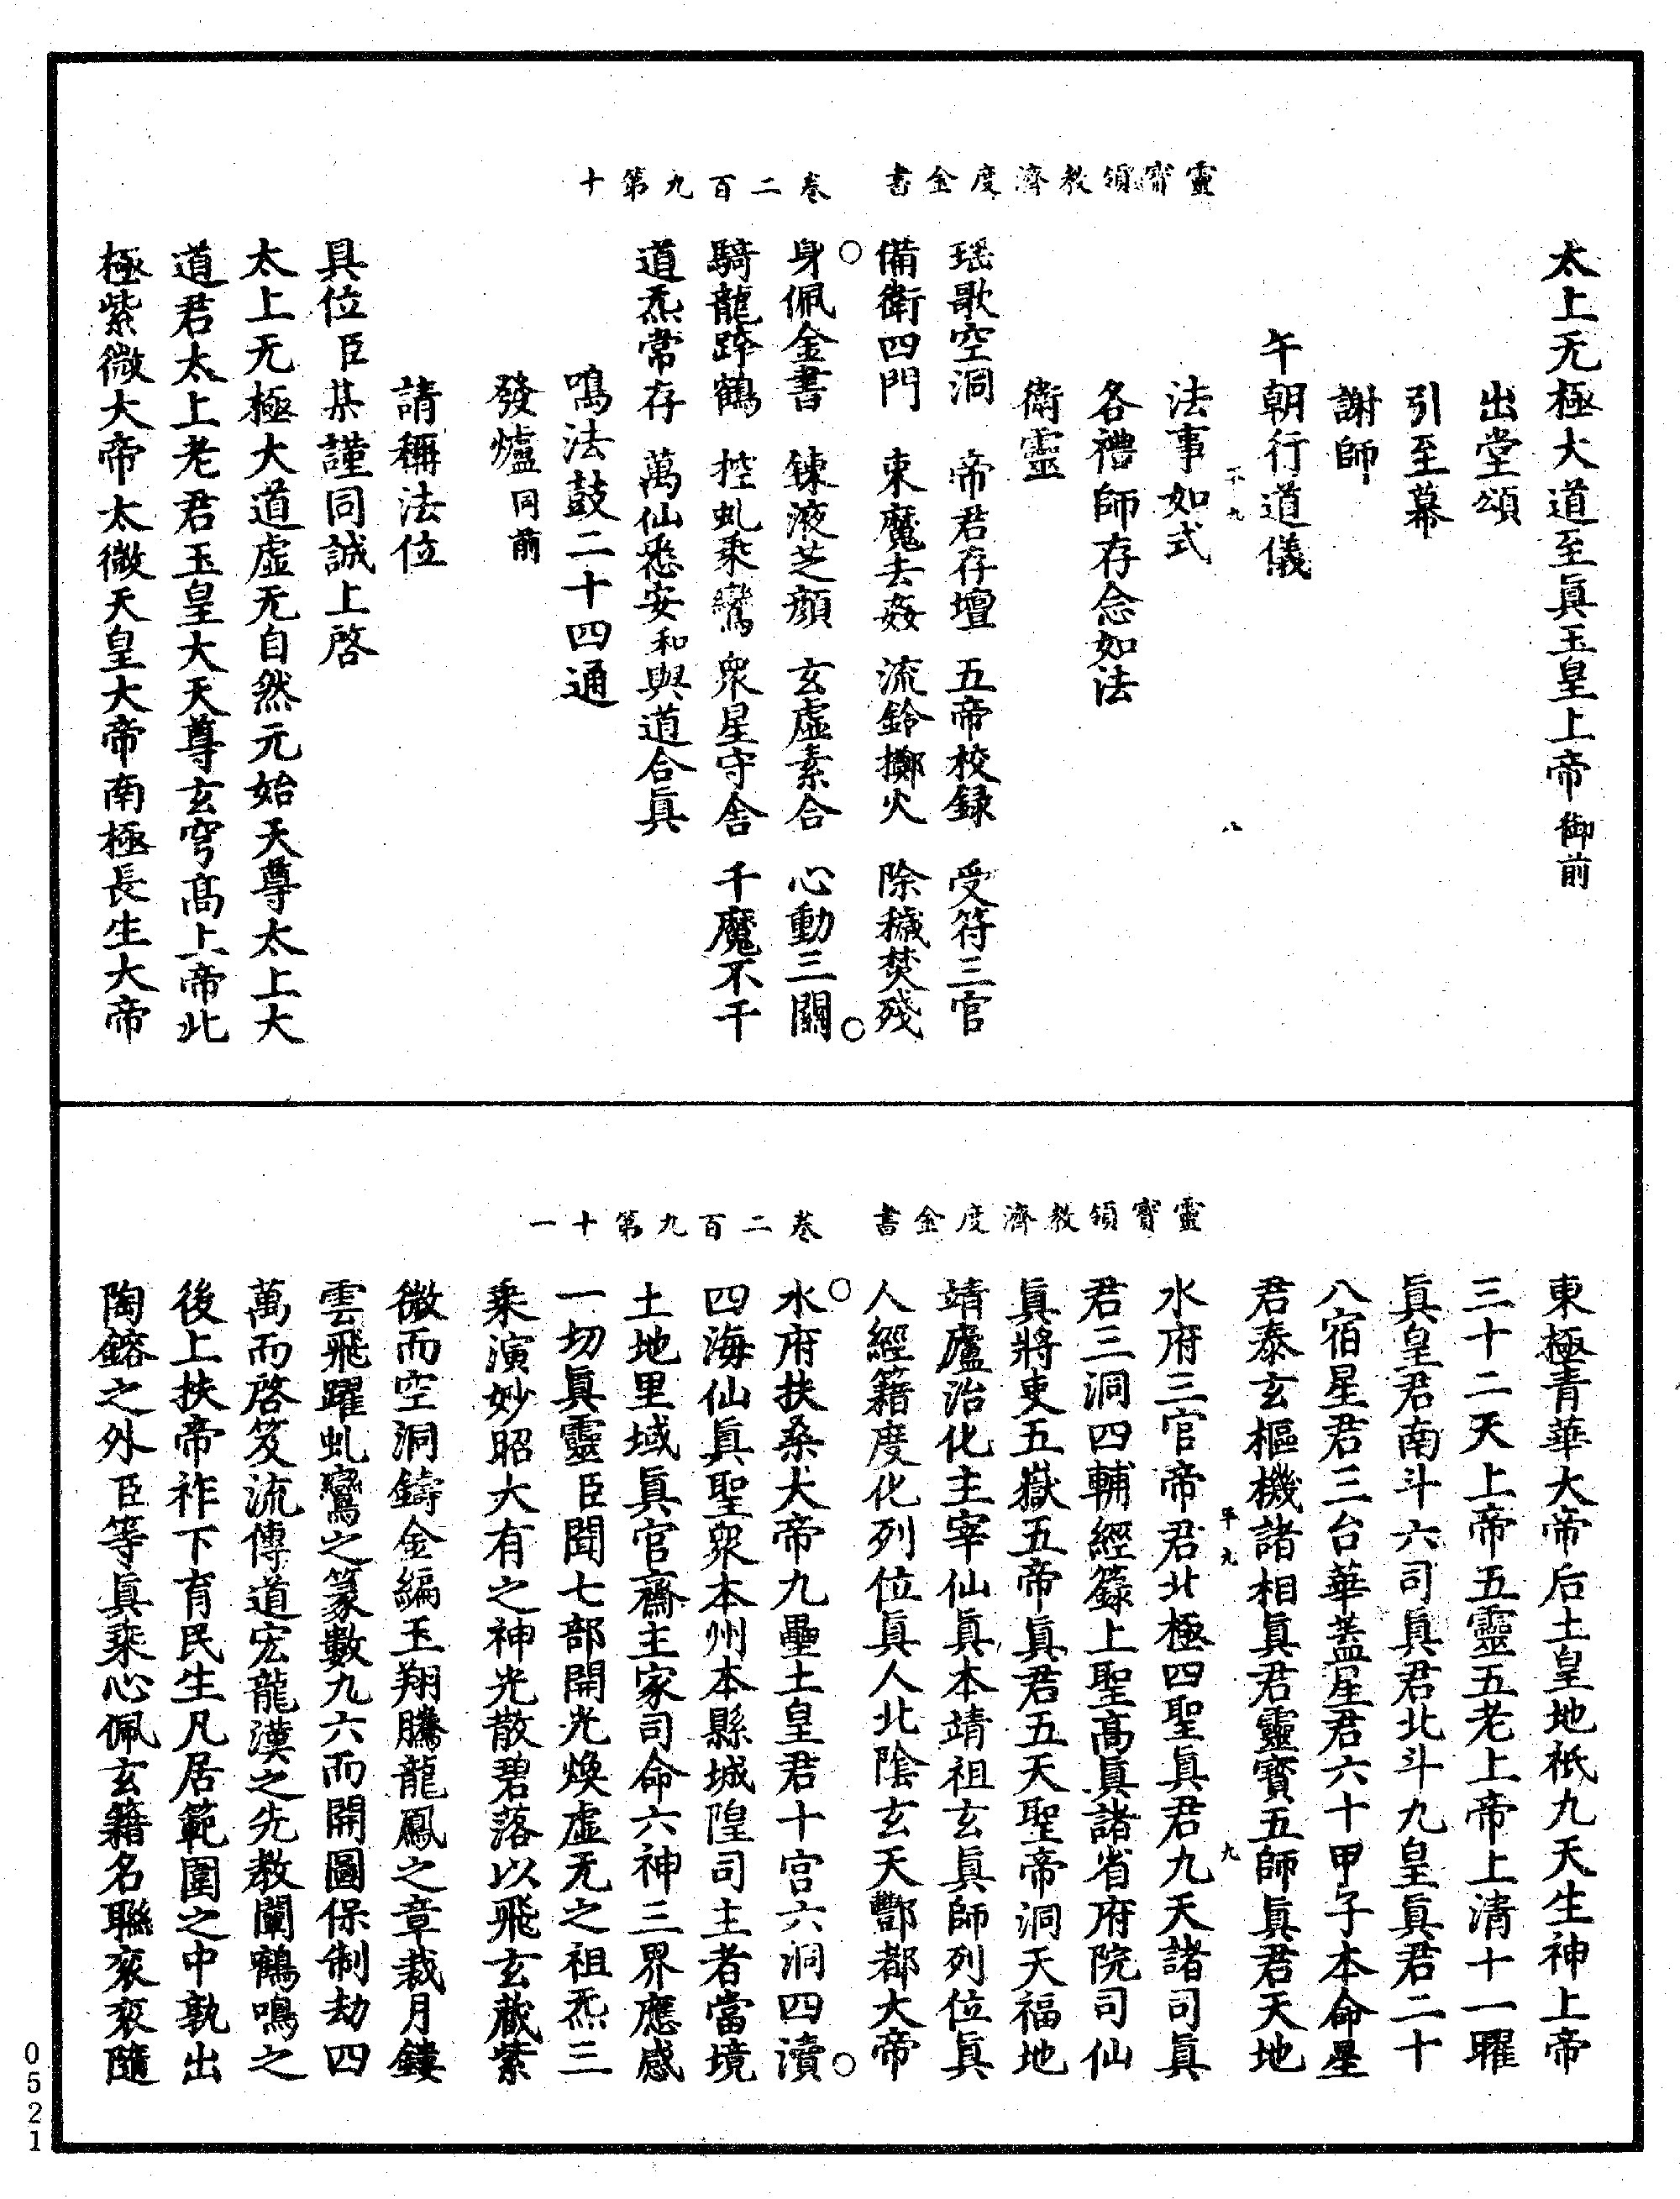 靈寶領教濟度金書　卷二百九第十
太上无極大道至眞玉皇上帝御前
出堂頌
引至幕
謝師
午朝行道儀
八
法事如式
各禮師存念如法
衛靈
瑶歌空洞　帝君存壇　五帝校録　受符三官
備衛四門　束魔去姦　流鈴擲火　除穢焚殘
身佩金書　鍊液芝顔　玄虛素合　心動三關
騎龍跨鶴　控虬乘鸞　衆星守舍　千魔不干
道炁常存　萬仙悉安和與道合眞
鳴法鼓二十四通
發爐同前
請稱法位
具位臣某謹同誠上啓
太上无極大道虛无自然元始天尊太上大
道君太上老君玉皇大天尊玄穹高上帝北
極紫微大帝太微天皇大帝南極長生大帝
靈寶領教濟度金書　卷二百九第十一
東極青華大帝后土皇地祇九天生神上帝
三十二天上帝五靈五老上帝上清十一曜
眞皇君南斗六司眞君北斗九皇眞君二十
八宿星君三台華蓋星君六十甲子本命星
君泰玄樞機諸相眞君靈寶五師眞君天地
九
水府三官帝君北極四聖眞君九天諸司眞
君三洞四輔經籙上聖高眞諸省府院司仙
眞將吏五嶽五帝眞君五天聖帝洞天福地
靖廬治化主宰仙眞本靖祖玄眞師列位眞
人經籍度化列位眞人北陰玄天酆都大帝
水府扶桑大帝九壘土皇君十宫六洞四瀆
四海仙眞聖衆本州本縣城隍司主者當境
土地里域眞官齋主家司命六神三界應感
一切眞靈臣聞七部開光煥虛无之祖炁三
乘演妙昭大有之神光散碧落以飛玄藏紫
微而空洞鑄金編玉翔騰龍鳳之章裁月鏤
雲飛躍虬鸞之篆數九六而開圖保制劫四
萬而啓笈流傳道宏龍漢之先教闡鶴鳴之
後上扶帝祚下育民生凡居範圍之中孰出
陶鎔之外臣等眞乘心佩玄籍名聯衮衮隨
0521